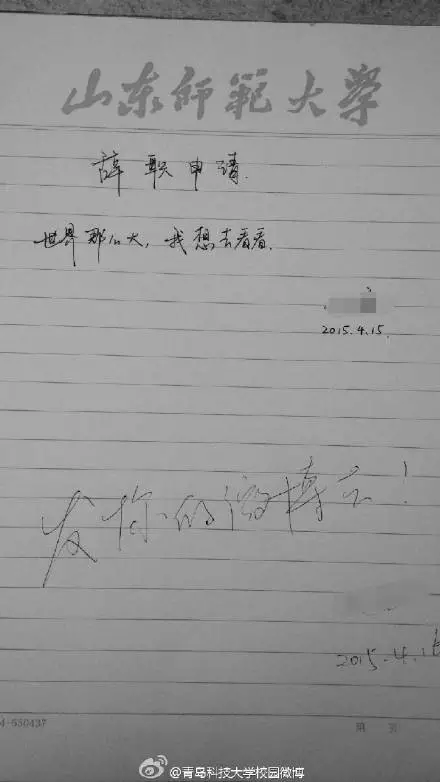 山东师范大学
辞职申请.
世界那么大，我想去看看.
2015.4.15.
发你的微博去！
2015.4.16
4-650437
第 页
@青岛科技大学校园微博